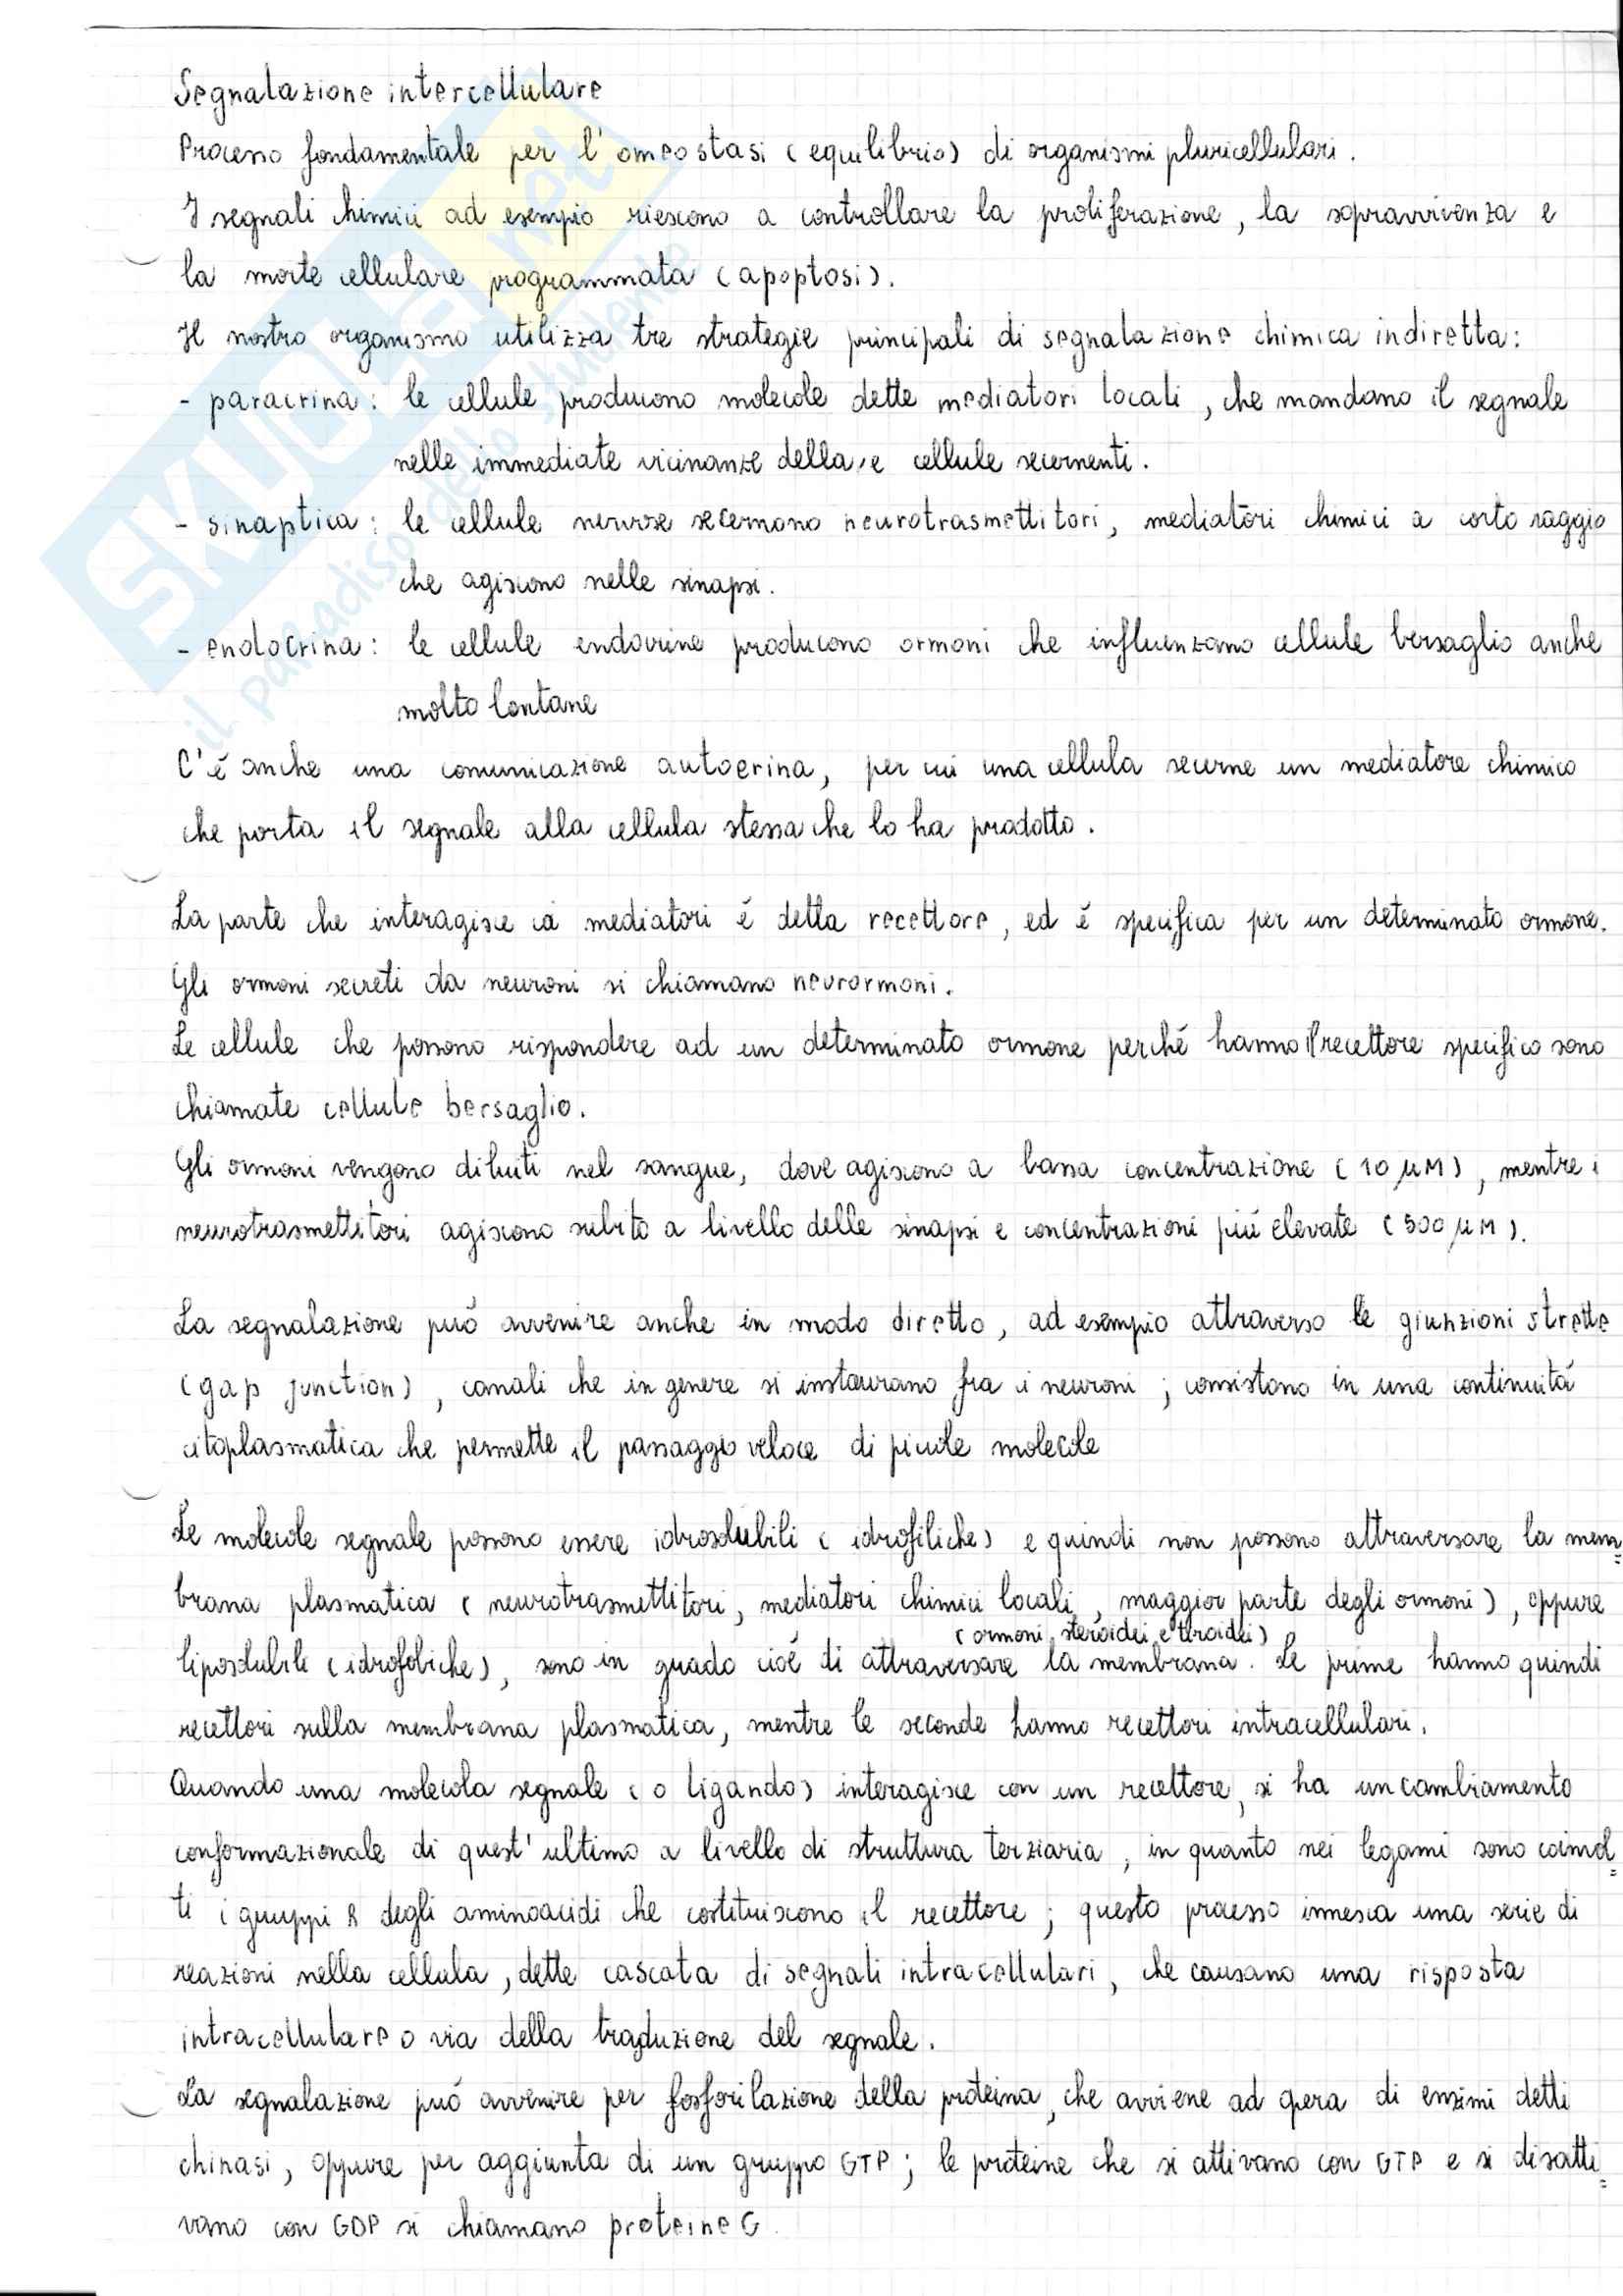 Segnalazione intercellulare
Processo fondamentale per l'omeostasi (equilibrio) di organismi pluricellulari.
I segnali chimici ad esempio riescono a controllare la proliferazione, la sopravvivenza e
la morte cellulare programmata (apoptosi).
Il nostro organismo utilizza tre strategie principali di segnalazione chimica indiretta:
- paracrina: le cellule producono molecole dette mediatori locali, che mandano il segnale
nelle immediate vicinanze della/e cellule secernenti.
- sinaptica: le cellule nervose secernono neurotrasmettitori, mediatori chimici a corto raggio
che agiscono nelle sinapsi.
- endocrina: le cellule endocrine producono ormoni che influenzano cellule bersaglio anche
molto lontane
C'é anche una comunicazione autocrina, per cui una cellula secerne un mediatore chimico
che porta il segnale alla cellula stessa che lo ha prodotto.
La parte che interagisce coi mediatori é detta recettore, ed é specifica per un determinato ormone.
Gli ormoni secreti da neuroni si chiamano neurormoni.
Le cellule che possono rispondere ad un determinato ormone perché hanno il recettore specifico sono
chiamate cellule bersaglio.
Gli ormoni vengono diluiti nel sangue, dove agiscono a bassa concentrazione (10 µM), mentre i
neurotrasmettitori agiscono subito a livello delle sinapsi e concentrazioni piú elevate (500 µM).
La segnalazione puó avvenire anche in modo diretto, ad esempio attraverso le giunzioni strette
(gap junction), canali che in genere si instaurano fra i neuroni; consistono in una continuitá
citoplasmatica che permette il passaggio veloce di piccole molecole
Le molecole segnale possono essere idrosolubili (idrofiliche) e quindi non possono attraversare la mem=
brana plasmatica (neurotrasmettitori, mediatori chimici locali, maggior parte degli ormoni), oppure
(ormoni steroidei e tiroidei)
liposolubili (idrofobiche), sono in grado cioé di attraversare la membrana. Le prime hanno quindi
recettori sulla membrana plasmatica, mentre le seconde hanno recettori intracellulari.
Quando una molecola segnale (o ligando) interagisce con un recettore, si ha un cambiamento
conformazionale di quest'ultimo a livello di struttura terziaria, in quanto nei legami sono coinvol=
ti i gruppi R degli aminoacidi che costituiscono il recettore; questo processo innesca una serie di
reazioni nella cellula, dette cascata di segnali intracellulari, che causano una risposta
intracellulare o via della traduzione del segnale.
La segnalazione puó avvenire per fosforilazione della proteina, che avviene ad opera di enzimi detti
chinasi, oppure per aggiunta di un gruppo GTP; le proteine che si attivano con GTP e si disatti=
vano con GDP si chiamano proteine G.
SKUOLA.net
il paradiso dello studente